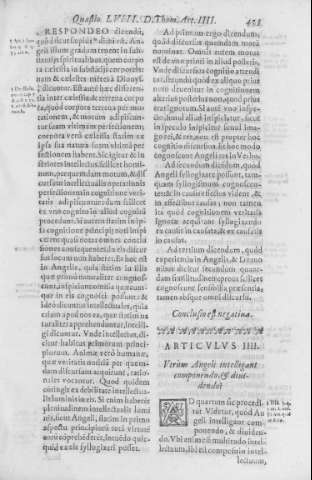 Quæstio. LVIII. D. Thom. Art. IIII.
RESPONDEO dicendū,
quòd sicut supra dictū est. An-
geli illum gradum tenent in sub-
stātijs spiritualibus, quem corpo
ra cælestia in substātijs corporeis:
nam & cælestes mētes à Dionys.
dicuntur. Est autē hæc differen-
tia inter cælestia & terrena corpo
ra, quòd corpora terrena per mu-
tationem, & motum adipiscun-
tur suam vltimam perfectionem:
corpora verò cælestia statim ex
ipsa sua natura suam vltimā per
fectionem habent. Sic igitur & in
feriores intellectus, scilicet homi-
num, per quendam motum, & dis-
cursum intellectualis operationis
perfectionem in cognitione veri-
tatis adipiscuntur: dum scilicet
ex vno cognito in aliud cognitū
procedunt. Si autem statim in ip-
sa cognitione principij noti inspi
cerent quasi notas omnes conclu
siones consequentes, in eis discur
sus locum non haberet. Et hoc est
in Angelis, quia statim in illis
quæ primò naturaliter cognos-
cunt, inspiciunt omnia quæcun-
que in eis cognosci possunt: &
ideo dicuntur intellectuales, quia
etiam apud nos, ea quæ statim na
turaliter apprehenduntur, intelli-
gi dicuntur. Vnde intellectus di-
citur habitus primorum princi-
piorum. Animæ verò humanæ,
quæ veritatis notitiā per quendam
discursum acquirunt, ratio-
nales vocantur. Quod quidem
contingit ex debilitate intellectua-
lis luminis in eis. Si enim haberēt
plenitudinem intellectualis lumi-
nis, sicut Angeli, statim in primo
aspectu principiorum totam vir-
tutem eorum cōprehenderēt, intuendo quic-
quid ex eis syllogizari posset.
Ad primum ergo dicendum,
quòd discursus quendam motū
nominat. Omnis autem motus
est de vno priori in aliud posterius.
Vnde discursiua cognitio attendi
tur, secundùm quòd ex aliquo prius
noto deuenitur in cognitionem
alterius posterius noti, quod prius
erat ignotum. Si autē in vno inspe-
cto, simul aliud inspiciatur, sicut
in speculo inspicitur simul ima-
go rei, & res, non est propter hoc
cognitio discursiua. Et hoc modo
cognoscunt Angeli res in Verbo.
Ad secundum dicendum, quòd
Angeli syllogizare possunt, tam-
quam syllogismum cognoscen-
tes: & in causis effectus vident, &
in effectibus causas; non tamen
ita quòd cognitionem veritatis
ignotæ acquirant syllogizando
ex causis in causata, & ex causatis
in causas.
Ad tertium dicendum, quòd
experientia in Angelis, & dæmo-
nibus dicitur secundùm quan-
dam similitudinem: prout scilicet
cognoscunt sensibilia præsentia,
tamen absque omni discursu.
Conclusio est negatiua.
ARTICVLVS IIII.
Vtrùm Angeli intelligant
componendo, & diui-
dendo?
AD quartum sic procedi-
tur. Videtur, quòd An-
geli intelligant com-
ponendo, & diuiden-
do. Vbi enim est multitudo intelle-
ctuum, ibi est compositio intel-
lectuum,